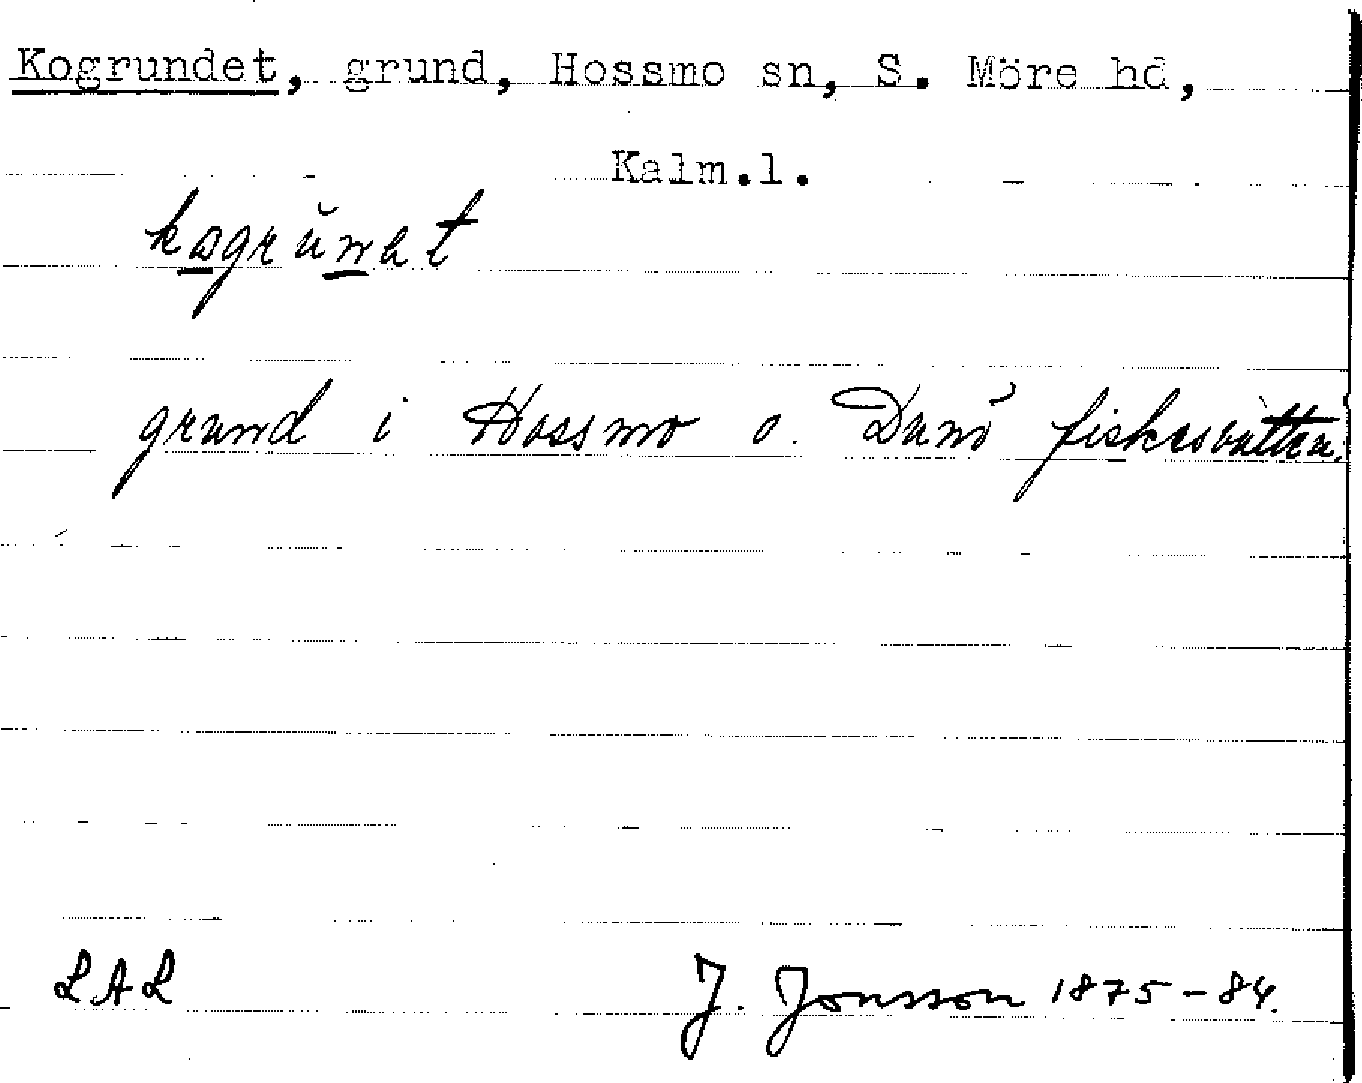 Kogrundet, grund, Hossmo sn, S. Möre hd,
Kalm.l.
grund i Hossmo o. Dunö fiskesvatten.
LAL
J. Jonsson 1875-84.